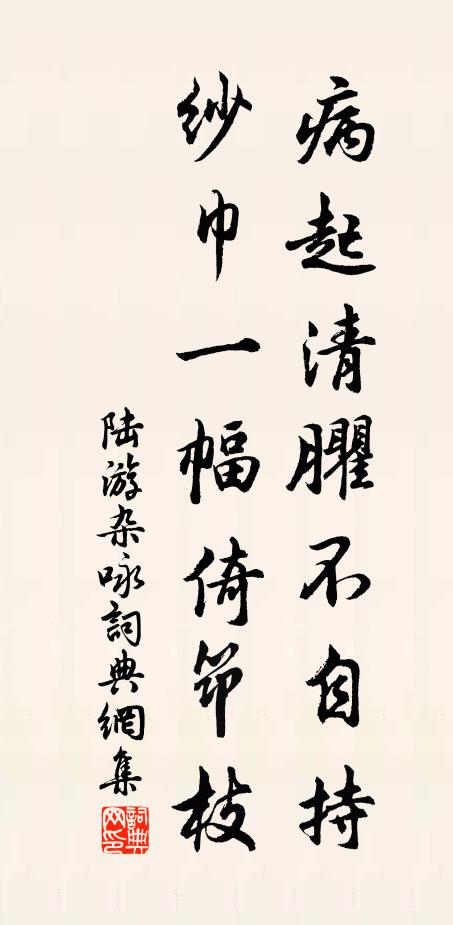 病起清臞不自持
纱巾一幅倚筇枝
陆游杂咏詞典網集
詞典网印